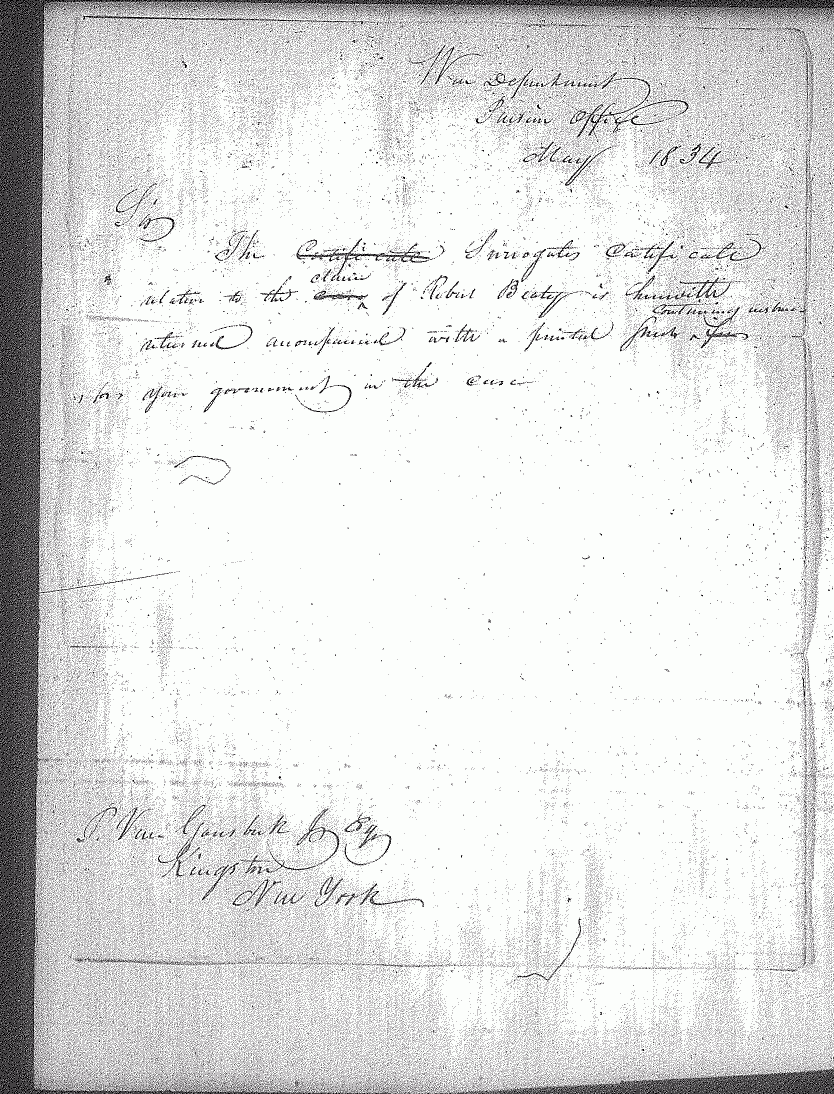 War Department
Pension Office
May 1834
Sir
The Certificate Surrogates Certificate
claim
relative to the case of Robert Beaty is herewith
containing instruc-
returned accompanied with a printed for
for your government in the case
P. Van Gansbeek Jr Esq
Kingston
New York